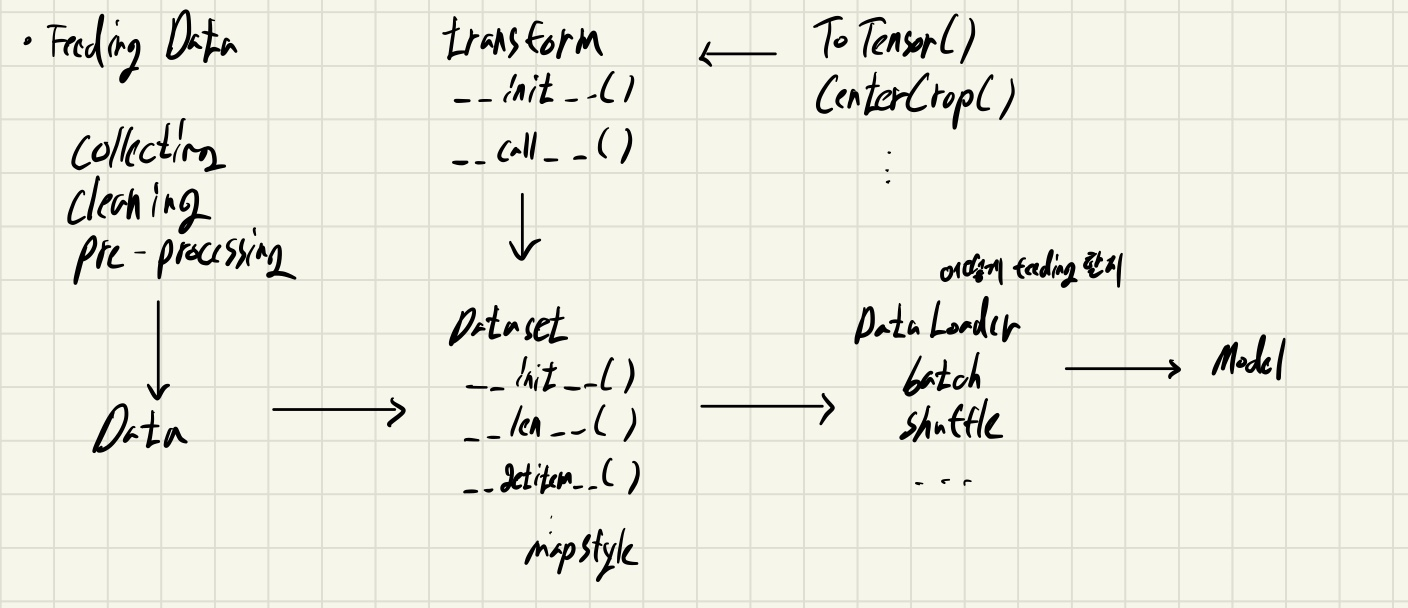 • Feeding Data
collecting
cleaning
pre-processing
Data
transform
__init__()
__call__()
ToTensor()
CenterCrop()
Dataset
__init__()
__len__()
__getitem__()
mapstyle
어떻게 feeding 할지
DataLoader
batch
shuffle
---
Model